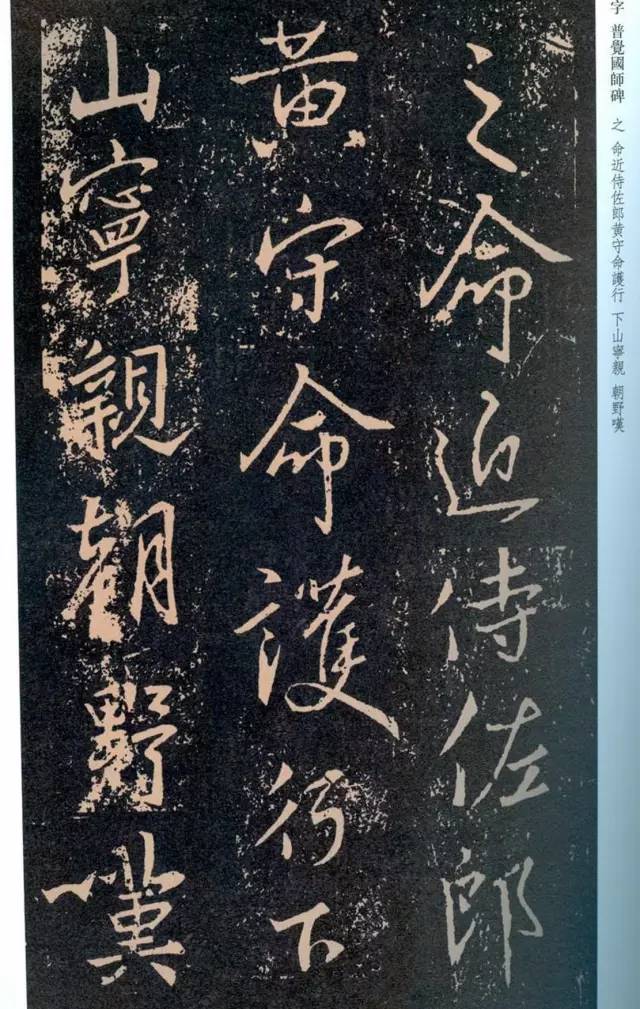 之命近侍佐郎
黄守命護行下
山寧親朝野嘆
字 普覺國師碑 之 命近侍佐郎黄守命護行 下山寧親 朝野嘆